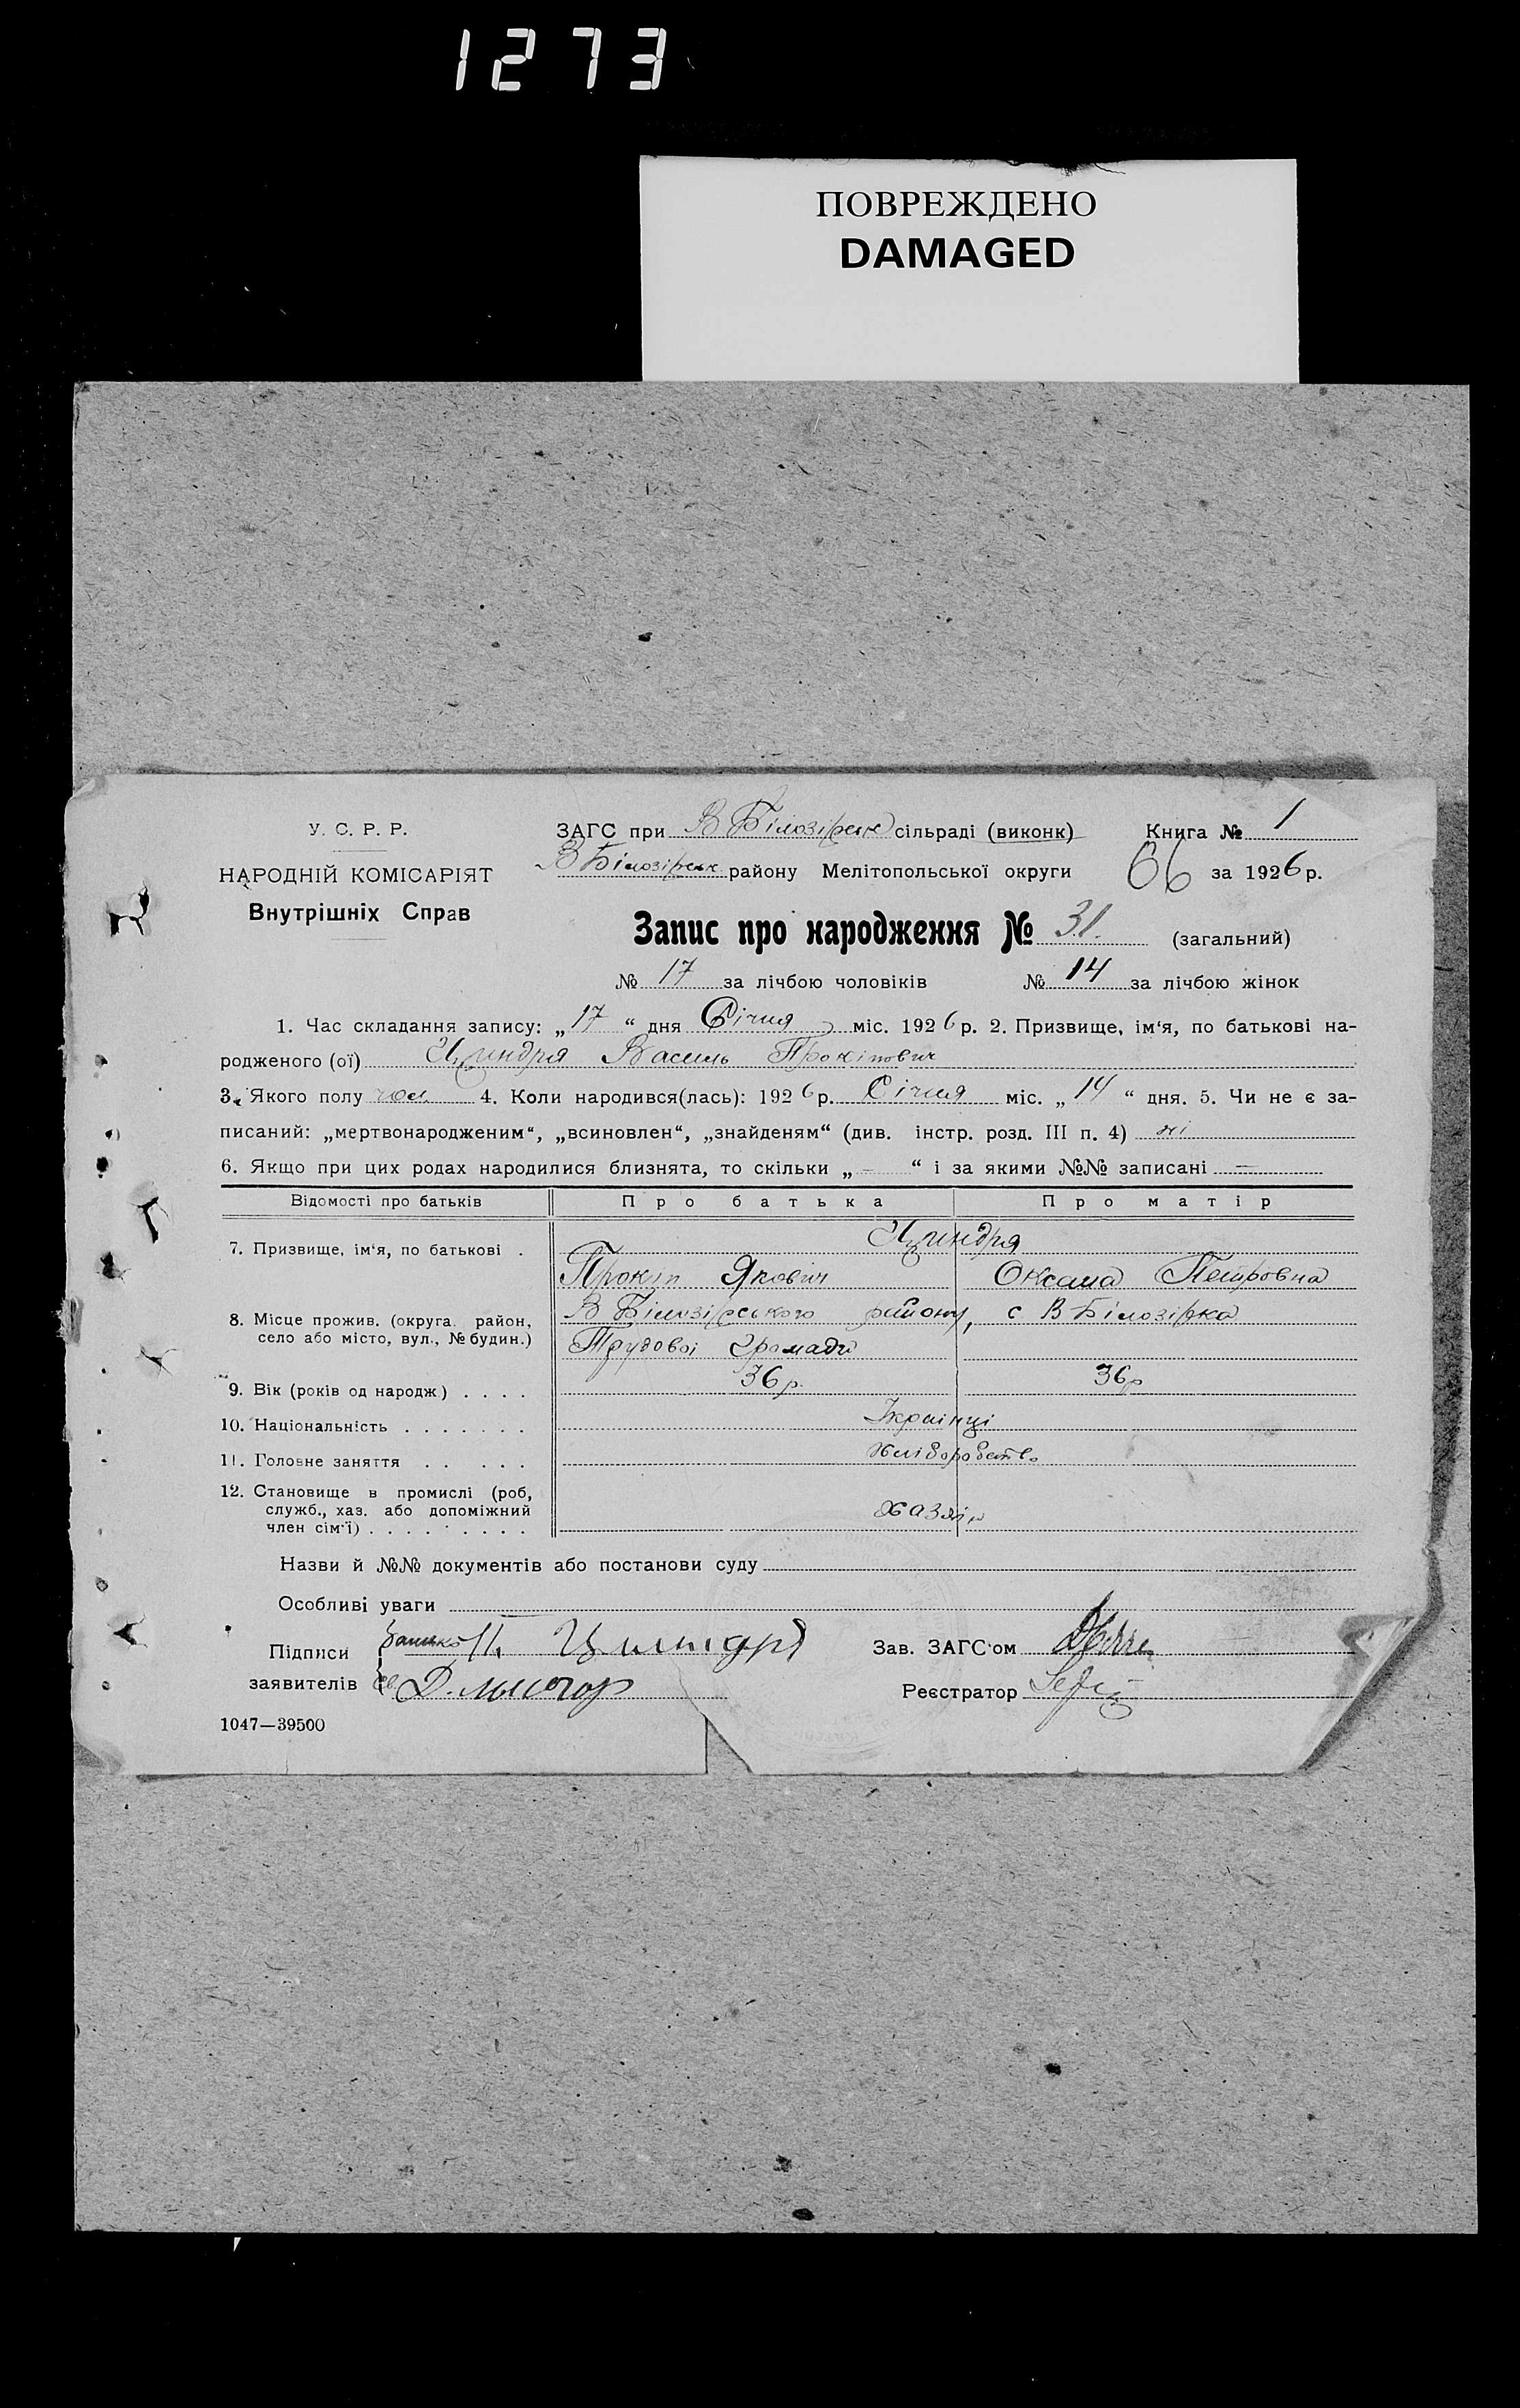 1273
ПОВРЕЖДЕНО
DAMAGED
У. С. Р. Р.
НАРОДНІЙ КОМІСАРІЯТ
Внутрішніх Справ
ЗАГС при В Білозірськ сільраді (виконк) Книга № 1
В Білозірськ району Мелітопольської округи 66 за 1926 р.
Запис про народження № 31. (загальний)
№ 17 за лічбою чоловіків № 14 за лічбою жінок
1. Час складання запису: „17“ дня Січня міс. 1926 р. 2. Призвище, ім'я, по батькові на-
родженого (ої) Циндря Василь Прокіпович
3. Якого полу чол 4. Коли народився(лась): 1926 р. Січня міс. „14“ дня. 5. Чи не є за-
писаний: „мертвонародженим“, „всиновлен“, „знайденям“ (див. інстр. розд. III п. 4) ні
6. Якщо при цих родах народилися близнята, то скільки „-“ і за якими №№ записані —
Відомості про батьків Про батька Про матір
7. Призвище, ім'я, по батькові . Циндря
Прокіп Якович Оксана Петровна
8. Місце прожив. (округа. район, село або місто, вул., № будин.) В Білозірського району, с В Білозірка
Трудової громади
9. Вік (років од народж) . . . . 36 р. 36 р
10. Національність . . . . . . . Українці
11. Головне заняття . . . . . хліборобство
12. Становище в промислі (роб,
служб., хаз. або допоміжний
член сім'ї) . . . . . . . . . хазяін
Назви й №№ документів або постанови суду
Особливі уваги
Підписи батько П. Циндря Зав. ЗАГС'ом
заявителів Реєстратор
1047—39500